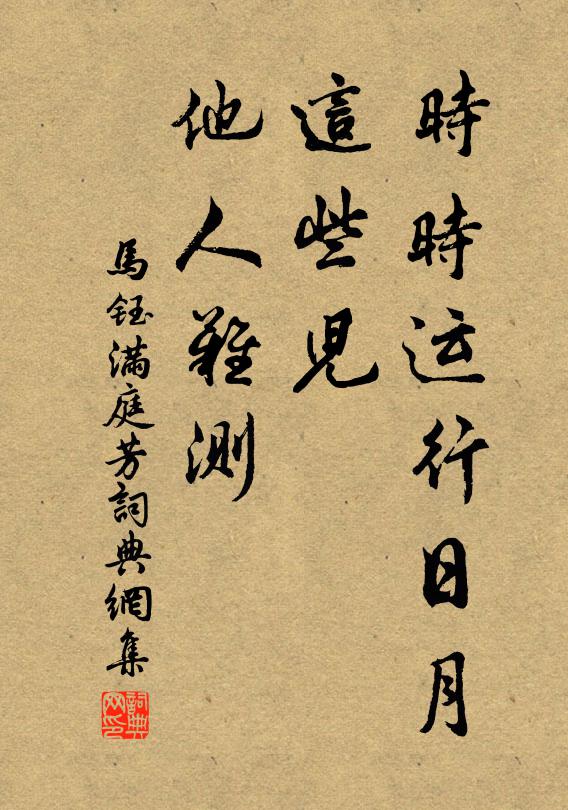 時時运行日月
這些兒
他人難測
馬鈺滿庭芳詞典網集
詞典网印